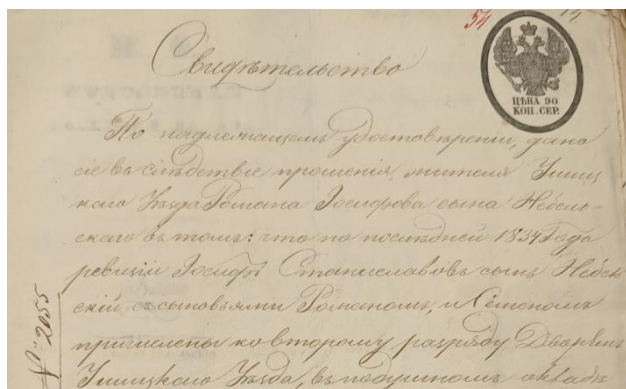 54
Свидѣтельство
ЦѢНА 90
КОП. СЕР.
По надлежащемъ удостовѣреніи, дано
сіе въ слѣдствіе прошенія, жителя Ушиц
каго Уѣзда Романа Іосифова сына Небель-
скаго въ томъ: что по послѣдней 1834 Года
ревизіи Іосифъ Станиславовъ сынъ Небель
скій, съ сыновьями Романомъ, и Семеномъ
причислены ко второму разряду Дворянъ
Ушицкаго Уѣзда, въ подушномъ окладѣ
№ 2055